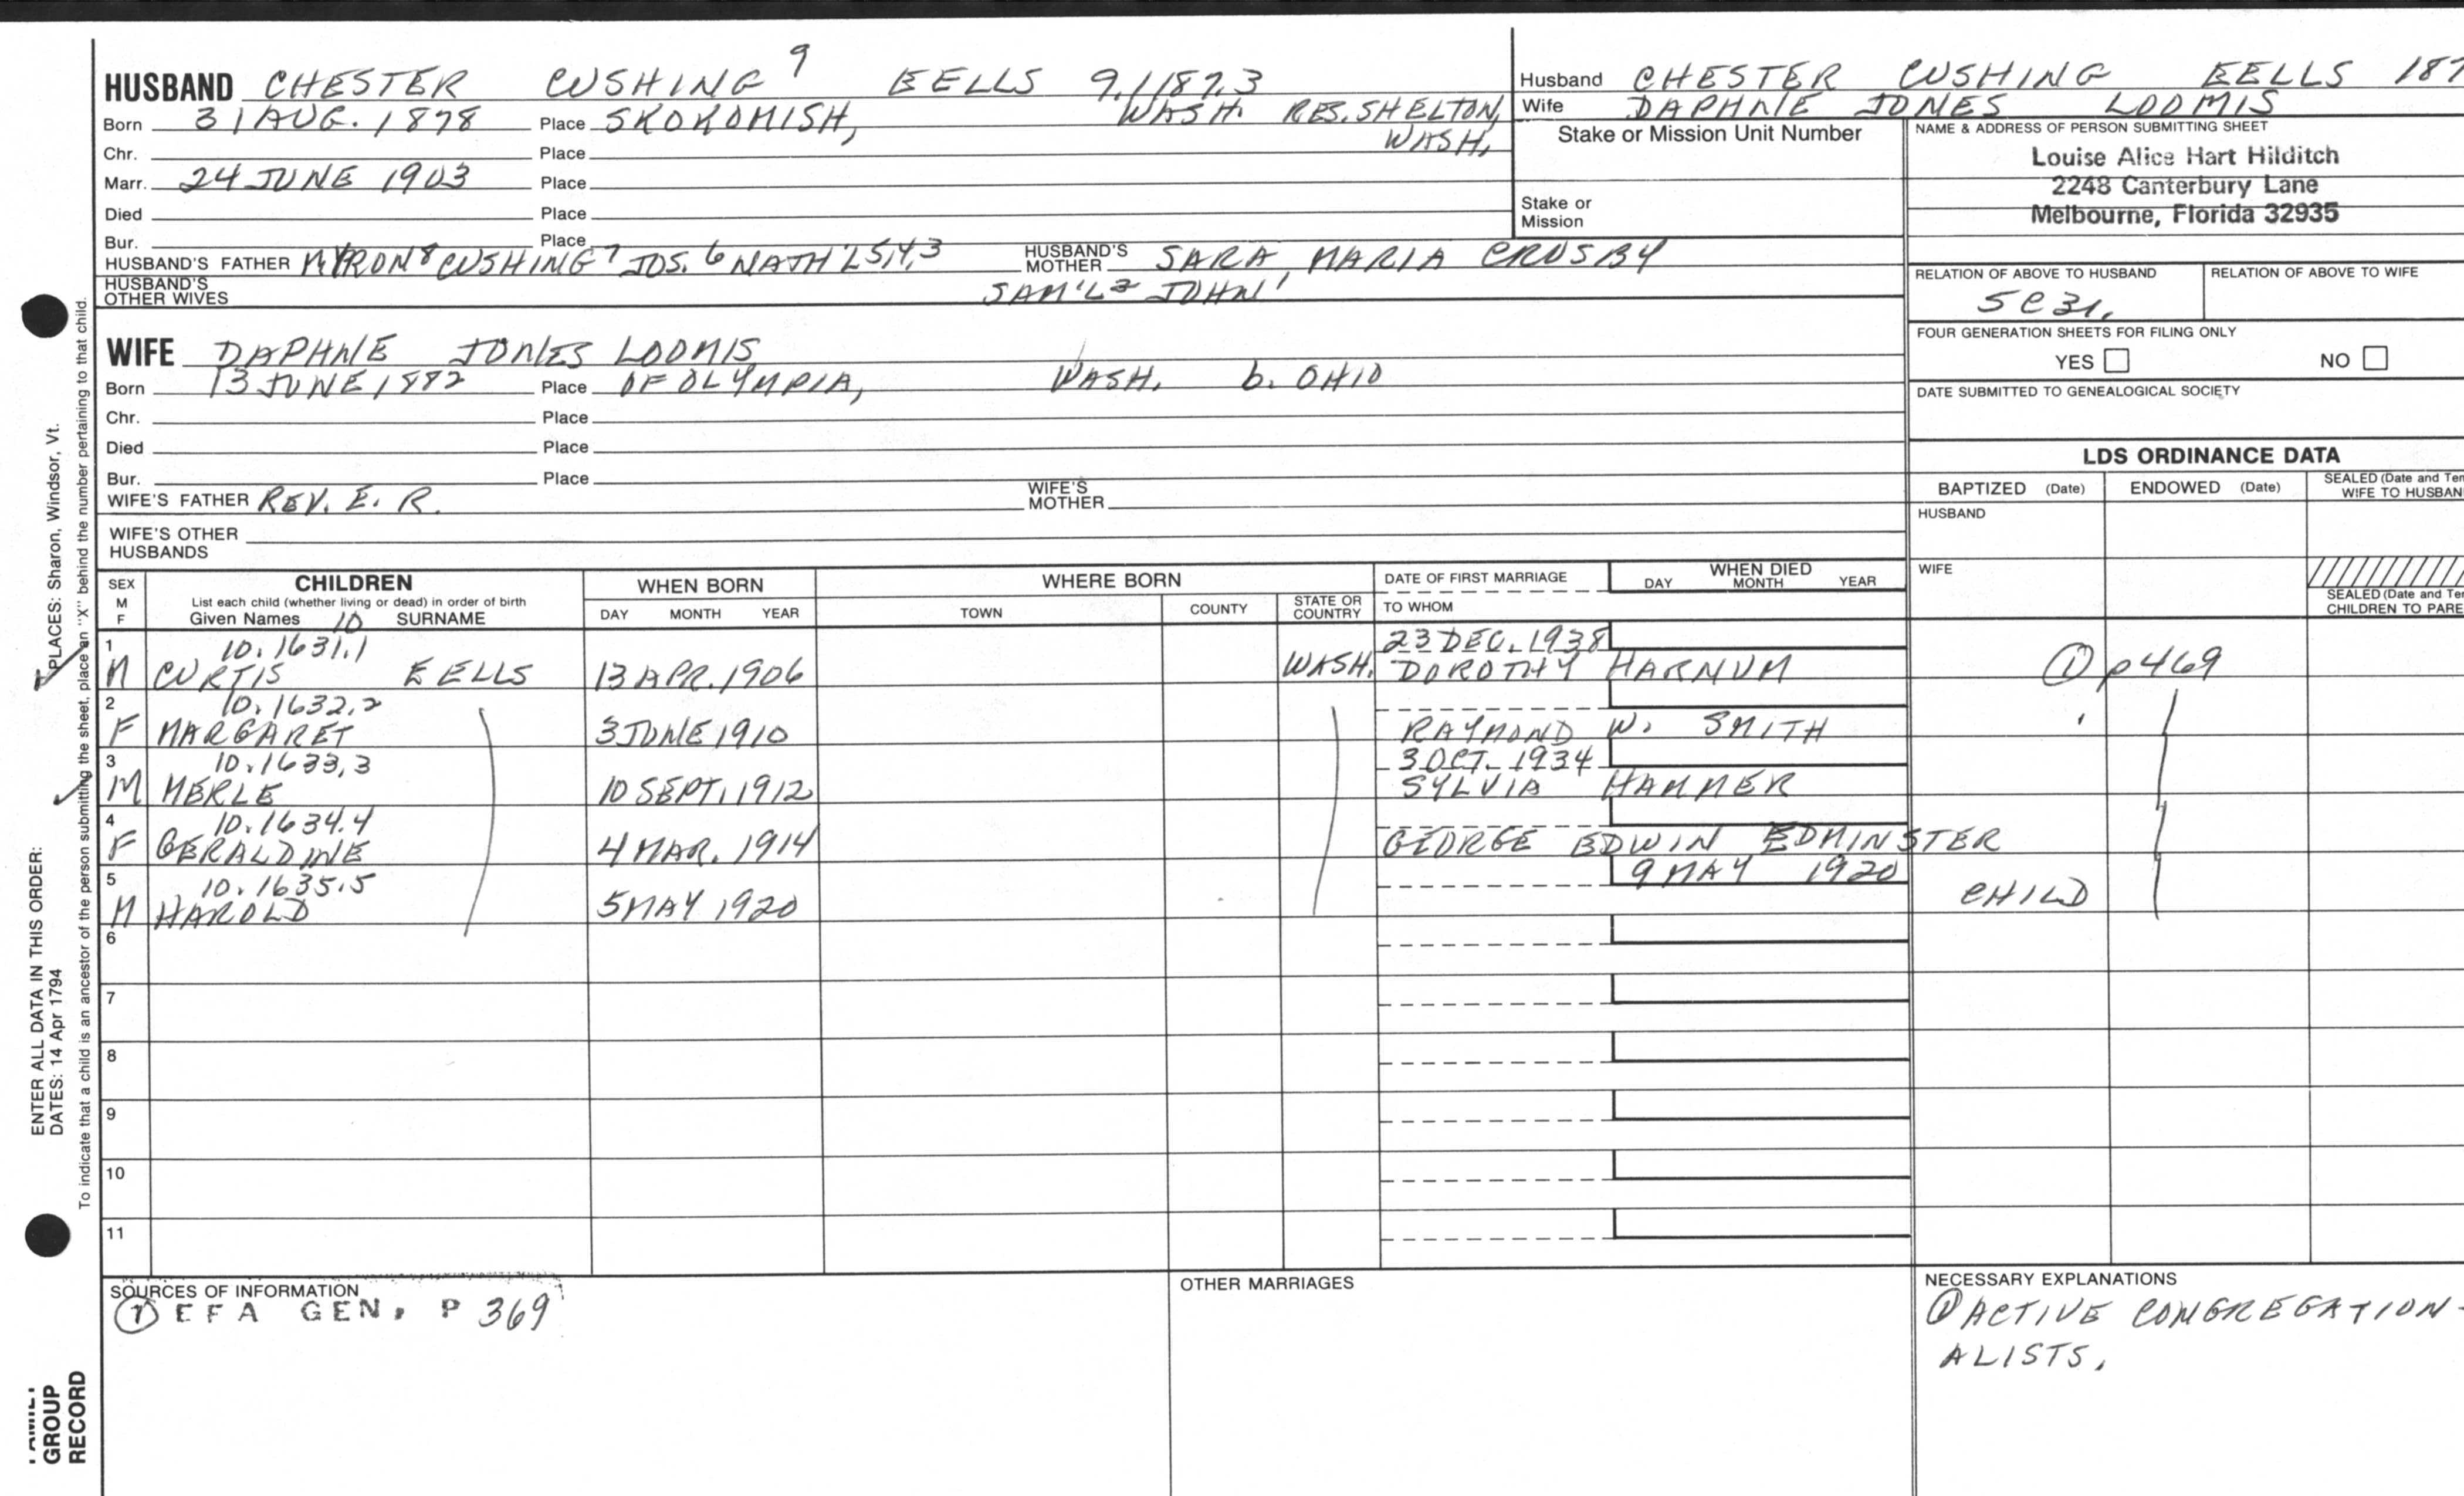 HUSBAND CHESTER CUSHING⁹ EELLS 9.1187.3
Born 31 AUG. 1878 Place SKOKOMISH, WASH. RES. SHELTON, WASH.
Chr. Place
Marr. 24 JUNE 1903 Place
Died Place
Bur. Place
HUSBAND'S FATHER MYRON⁸ CUSHING⁷ JOS.⁶ NATH'L 5,4,3 HUSBAND'S MOTHER SARA MARIA CROSBY
HUSBAND'S OTHER WIVES SAM'L² JOHN¹
WIFE DAPHNE JONES LOOMIS
Born 13 JUNE 1882 Place OF OLYMPIA, WASH. b. OHIO
Chr. Place
Died Place
Bur. Place
WIFE'S FATHER REV. E. R. WIFE'S MOTHER
WIFE'S OTHER HUSBANDS
Husband CHESTER CUSHING EELLS 187
Wife DAPHNE JONES LOOMIS
Stake or Mission Unit Number
Stake or Mission
NAME & ADDRESS OF PERSON SUBMITTING SHEET
Louise Alice Hart Hilditch
2248 Canterbury Lane
Melbourne, Florida 32935
RELATION OF ABOVE TO HUSBAND RELATION OF ABOVE TO WIFE
5C3
FOUR GENERATION SHEETS FOR FILING ONLY
YES NO
DATE SUBMITTED TO GENEALOGICAL SOCIETY
LDS ORDINANCE DATA
BAPTIZED (Date) ENDOWED (Date) SEALED (Date and Tem
WIFE TO HUSBAN
HUSBAND
WIFE
SEALED (Date and Te
CHILDREN TO PARE
SEX M F CHILDREN WHEN BORN WHERE BORN DATE OF FIRST MARRIAGE WHEN DIED
List each child (whether living or dead) in order of birth
Given Names 10 SURNAME DAY MONTH YEAR TOWN COUNTY STATE OR COUNTRY TO WHOM DAY MONTH YEAR
1 10.1631.1 23 DEC. 1938
M CURTIS EELLS 13 APR. 1906 WASH. DOROTHY HARNUM ① p 469
2 10.1632.2
F MARGARET 3 JUNE 1910 RAYMOND W. SMITH
3 10.1633.3 3 OCT. 1934
M MERLE 10 SEPT. 1912 SYLVIA HAMMER
4 10.1634.4
F GERALDINE 4 MAR. 1914 GEORGE EDWIN EDMINSTER
5 10.1635.5 9 MAY 1920
M HAROLD 5 MAY 1920 CHILD
6
7
8
9
10
11
SOURCES OF INFORMATION
① EFA GEN, P 369
OTHER MARRIAGES
NECESSARY EXPLANATIONS
① ACTIVE CONGREGATION-
ALISTS.
ENTER ALL DATA IN THIS ORDER:
DATES: 14 Apr 1794 PLACES: Sharon, Windsor, Vt.
To indicate that a child is an ancestor of the person submitting the sheet, place an "X" behind the number pertaining to that child.
FAMILY
GROUP
RECORD